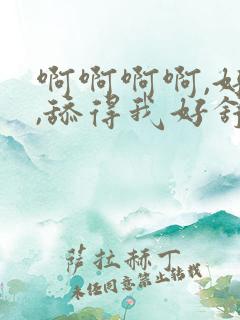 啊啊啊啊,好
,舔得我好舒
萨拉赫丁
未经同意禁止转载